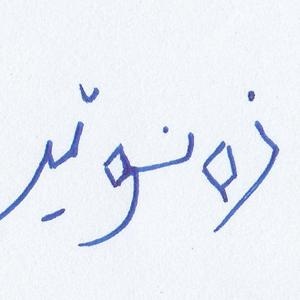 زەنوێر